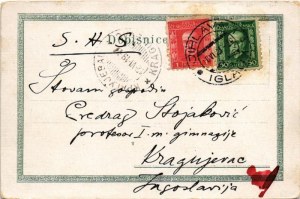 Dopisnice
S. H. S.
JIHLAVA
IGLAU
Štovani gospodin
Predrag Stojaković
profesor I. m. gimnazije
Kragujevac
Jugoslavija